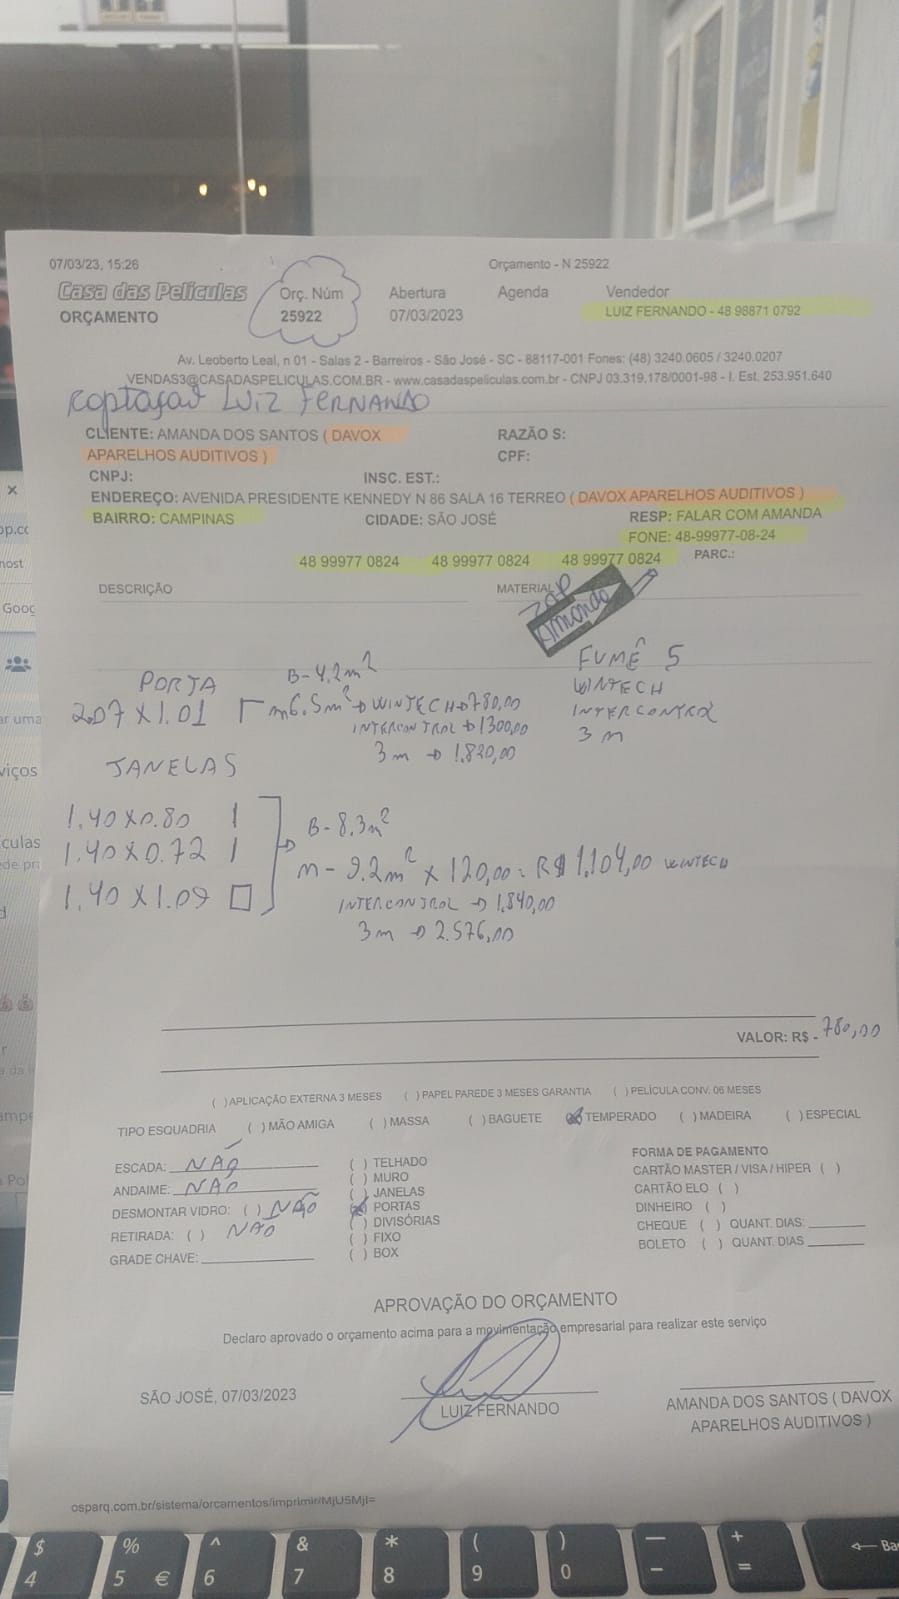 07/03/23, 15:26
Orçamento - N 25922
Casa das Películas
ORÇAMENTO
Orç. Núm
25922
Abertura
07/03/2023
Agenda
Vendedor
LUIZ FERNANDO - 48 98871 0792
Av. Leoberto Leal, n 01 - Salas 2 - Barreiros - São José - SC - 88117-001 Fones: (48) 3240.0605 / 3240.0207
VENDAS3@CASADASPELICULAS.COM.BR - www.casadaspeliculas.com.br - CNPJ 03.319.178/0001-98 - I. Est. 253.951.640
LUIZ FERNANDO
CLIENTE: AMANDA DOS SANTOS ( DAVOX
APARELHOS AUDITIVOS )
RAZÃO S:
CPF:
CNPJ:
INSC. EST.:
ENDEREÇO: AVENIDA PRESIDENTE KENNEDY N 86 SALA 16 TERREO ( DAVOX APARELHOS AUDITIVOS )
BAIRRO: CAMPINAS
CIDADE: SÃO JOSÉ
RESP: FALAR COM AMANDA
FONE: 48-99977-08-24
48 99977 0824 48 99977 0824 48 99977 0824
PARC.:
DESCRIÇÃO
MATERIAL
ZAP
Amanda
PORTA
2.07 X 1.01
B-4,2m²
m6.5m² → WINTECH → 780,00
INTERCONTROL → 1300,00
3m → 1.820,00
FUMÊ 5
WINTECH
INTERCONTROL
3m
JANELAS
1.40 X 0.80 |
1.40 X 0.72 |
1.40 X 1.09 □
B-8.3m²
m-9.2m² x 120,00 = R$ 1.104,00 WINTECH
INTERCONTROL → 1.840,00
3m → 2.576,00
VALOR: R$ - 780,00
( )APLICAÇÃO EXTERNA 3 MESES ( )PAPEL PAREDE 3 MESES GARANTIA ( )PELÍCULA CONV. 06 MESES
TIPO ESQUADRIA ( )MÃO AMIGA ( )MASSA ( )BAGUETE (x)TEMPERADO ( )MADEIRA ( )ESPECIAL
ESCADA: NÃO
ANDAIME: NÃO
DESMONTAR VIDRO: ( ) NÃO
RETIRADA: ( ) NÃO
GRADE CHAVE:
( ) TELHADO
( ) MURO
( ) JANELAS
(x) PORTAS
( ) DIVISÓRIAS
( ) FIXO
( ) BOX
FORMA DE PAGAMENTO
CARTÃO MASTER / VISA / HIPER ( )
CARTÃO ELO ( )
DINHEIRO ( )
CHEQUE ( ) QUANT. DIAS:
BOLETO ( ) QUANT. DIAS
APROVAÇÃO DO ORÇAMENTO
Declaro aprovado o orçamento acima para a movimentação empresarial para realizar este serviço
SÃO JOSÉ, 07/03/2023
LUIZ FERNANDO
AMANDA DOS SANTOS ( DAVOX
APARELHOS AUDITIVOS )
osparq.com.br/sistema/orcamentos/imprimir/MjU5MjI=
$ % ^ & * ( ) — + ← Ba
4 5 € 6 7 8 9 0 - =